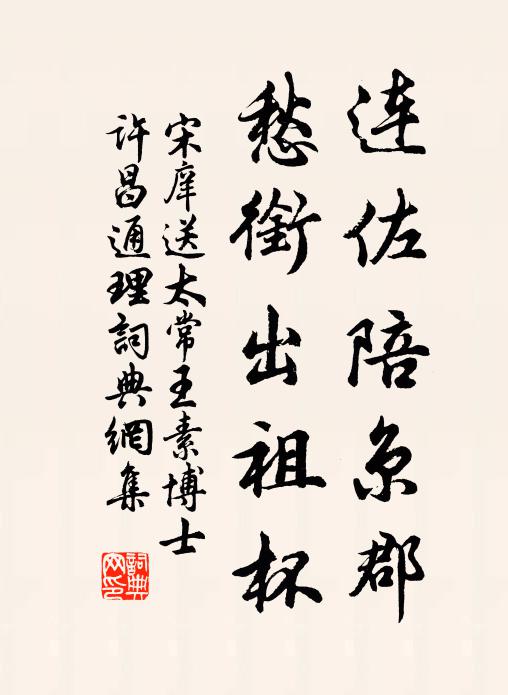 连佐陪京郡
愁銜出祖杯
宋庠送太常王素博士
许昌通理詞典網集
詞典网印